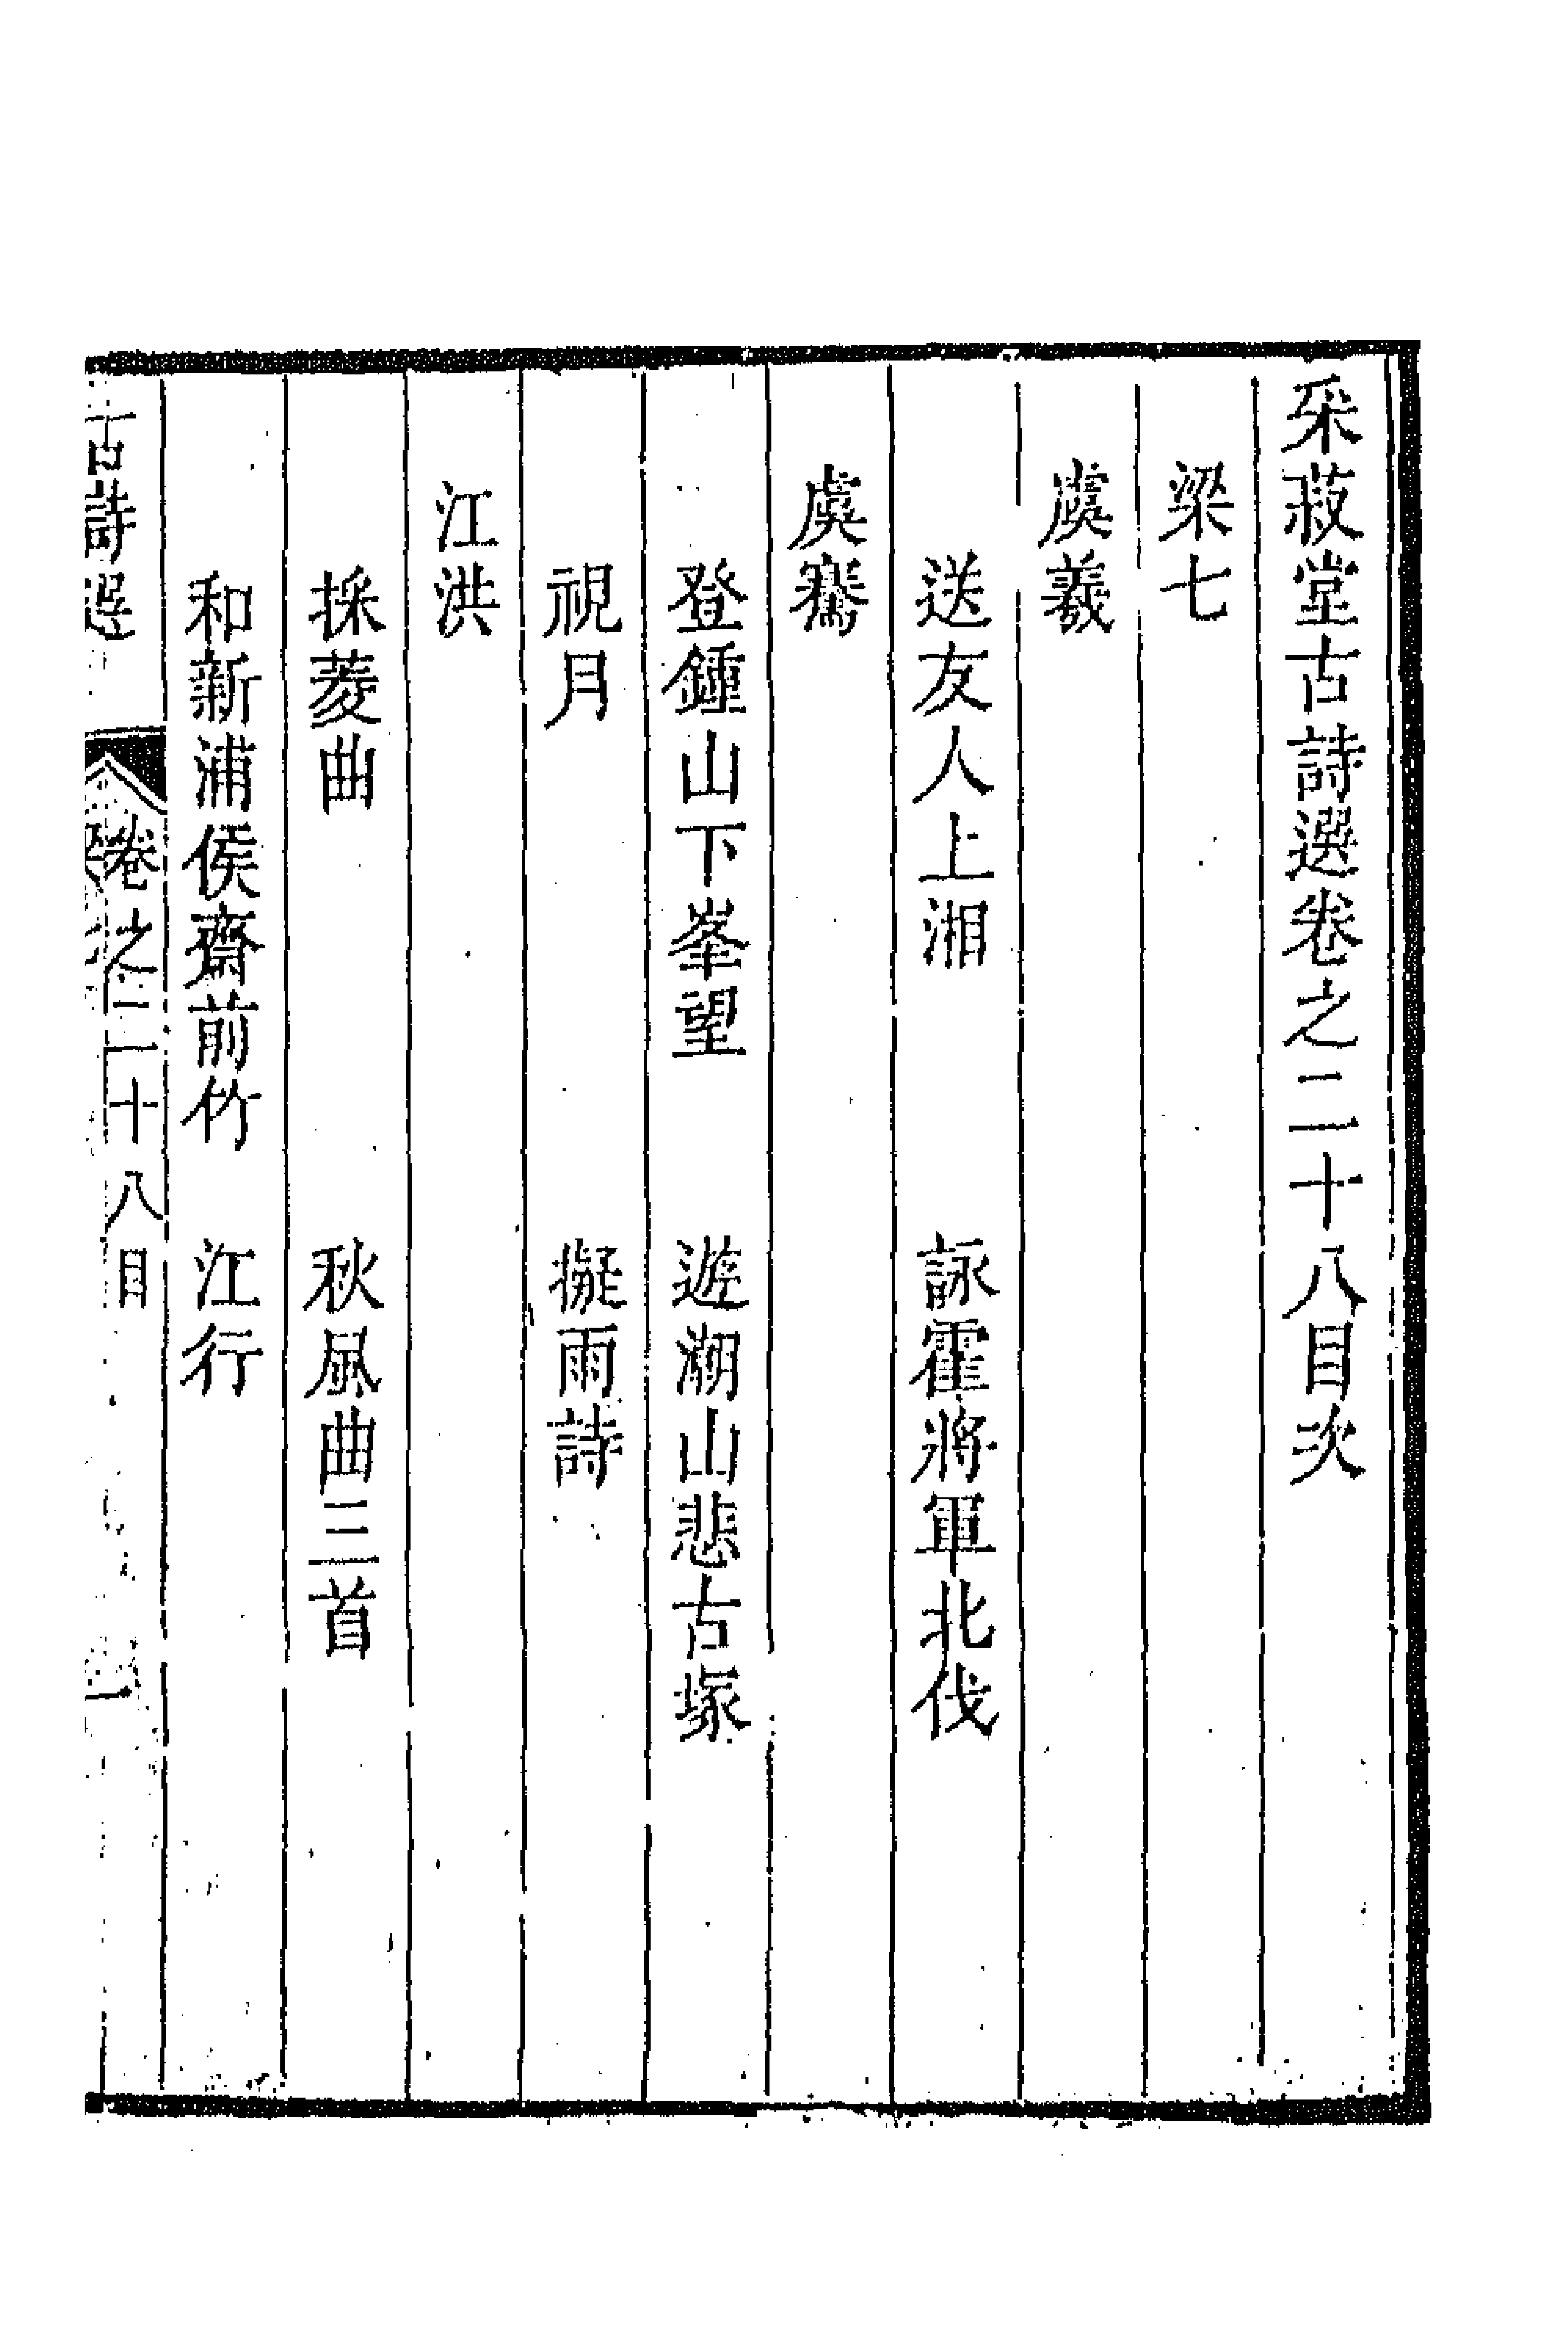 采菽堂古詩選卷之二十八目次
梁七
虞羲
送友人上湘　詠霍將軍北伐
虞騫
登鍾山下峯望　遊潮山悲古塚
視月　擬雨詩
江洪
採菱曲　秋風曲三首
和新浦侯齋前竹　江行
古詩選　卷之二十八目　一